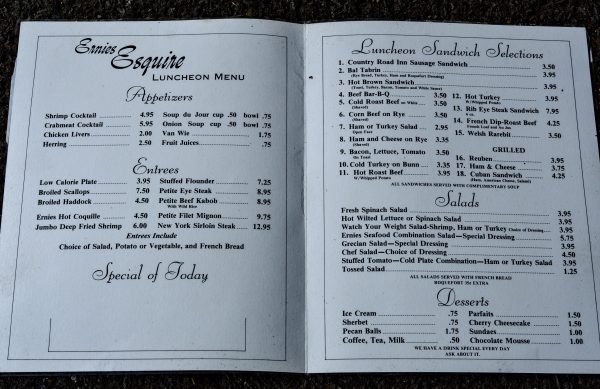 Ernies
Esquire
LUNCHEON MENU
Appetizers
Shrimp Cocktail 4.95
Crabmeat Cocktail 5.95
Chicken Livers 2.00
Herring 2.50
Soup du Jour cup .50 bowl .75
Onion Soup cup .50 bowl .75
Van Wie 1.75
Fruit Juices .75
Entrees
Low Calorie Plate 3.95
Broiled Scallops 7.50
Broiled Haddock 4.50
Ernies Hot Coquille 4.50
Jumbo Deep Fried Shrimp 6.00
Stuffed Flounder 7.25
Petite Eye Steak 8.95
Petite Beef Kabob 8.95
With Wild Rice
Petite Filet Mignon 9.75
New York Sirloin Steak 12.95
Entrees Include
Choice of Salad, Potato or Vegetable, and French Bread
Special of Today
Luncheon Sandwich Selections
1. Country Road Inn Sausage Sandwich 3.50
2. Bal Tabrin 3.95
(Rye Bread, Turkey, Ham and Roquefort Dressing)
3. Hot Brown Sandwich 3.95
(Toast, Turkey, Bacon, Tomato and White Sauce)
4. Beef Bar-B-Q 3.50
5. Cold Roast Beef on White 3.50
(Shaved)
6. Corn Beef on Rye 3.50
(Shaved)
7. Ham or Turkey Salad 2.95
Open Face
8. Ham and Cheese on Rye 3.35
(Shaved)
9. Bacon, Lettuce, Tomato 3.50
(On Toast)
10. Cold Turkey on Bunn 3.35
11. Hot Roast Beef 3.95
w/Whipped Potato
12. Hot Turkey 3.95
W/Whipped Potato
13. Rib Eye Steak Sandwich 7.95
6 oz.
14. French Dip-Roast Beef 4.25
French Loaf and Au Jus
15. Welsh Rarebit 3.50
GRILLED
16. Reuben 3.95
17. Ham & Cheese 3.75
18. Cuban Sandwich 4.25
(Ham, American Cheese, Salami)
ALL SANDWICHES SERVED WITH COMPLIMENTARY SOUP
Salads
Fresh Spinach Salad 3.95
Hot Wilted Lettuce or Spinach Salad 3.95
Watch Your Weight Salad-Shrimp, Ham or Turkey Choice of Dressing 3.95
Ernies Seafood Combination Salad—Special Dressing 5.75
Grecian Salad—Special Dressing 3.95
Chef Salad—Choice of Dressing 4.50
Stuffed Tomato—Cold Plate Combination—Ham or Turkey Salad 3.95
Tossed Salad 1.25
ALL SALADS SERVED WITH FRENCH BREAD
ROQUEFORT 35¢ EXTRA
Desserts
Ice Cream .75
Sherbet .75
Pecan Balls 1.75
Coffee, Tea, Milk .50
Parfaits 1.50
Cherry Cheesecake 1.50
Sundaes 1.00
Chocolate Mousse 1.00
WE HAVE A DRINK SPECIAL EVERY DAY
ASK ABOUT IT.